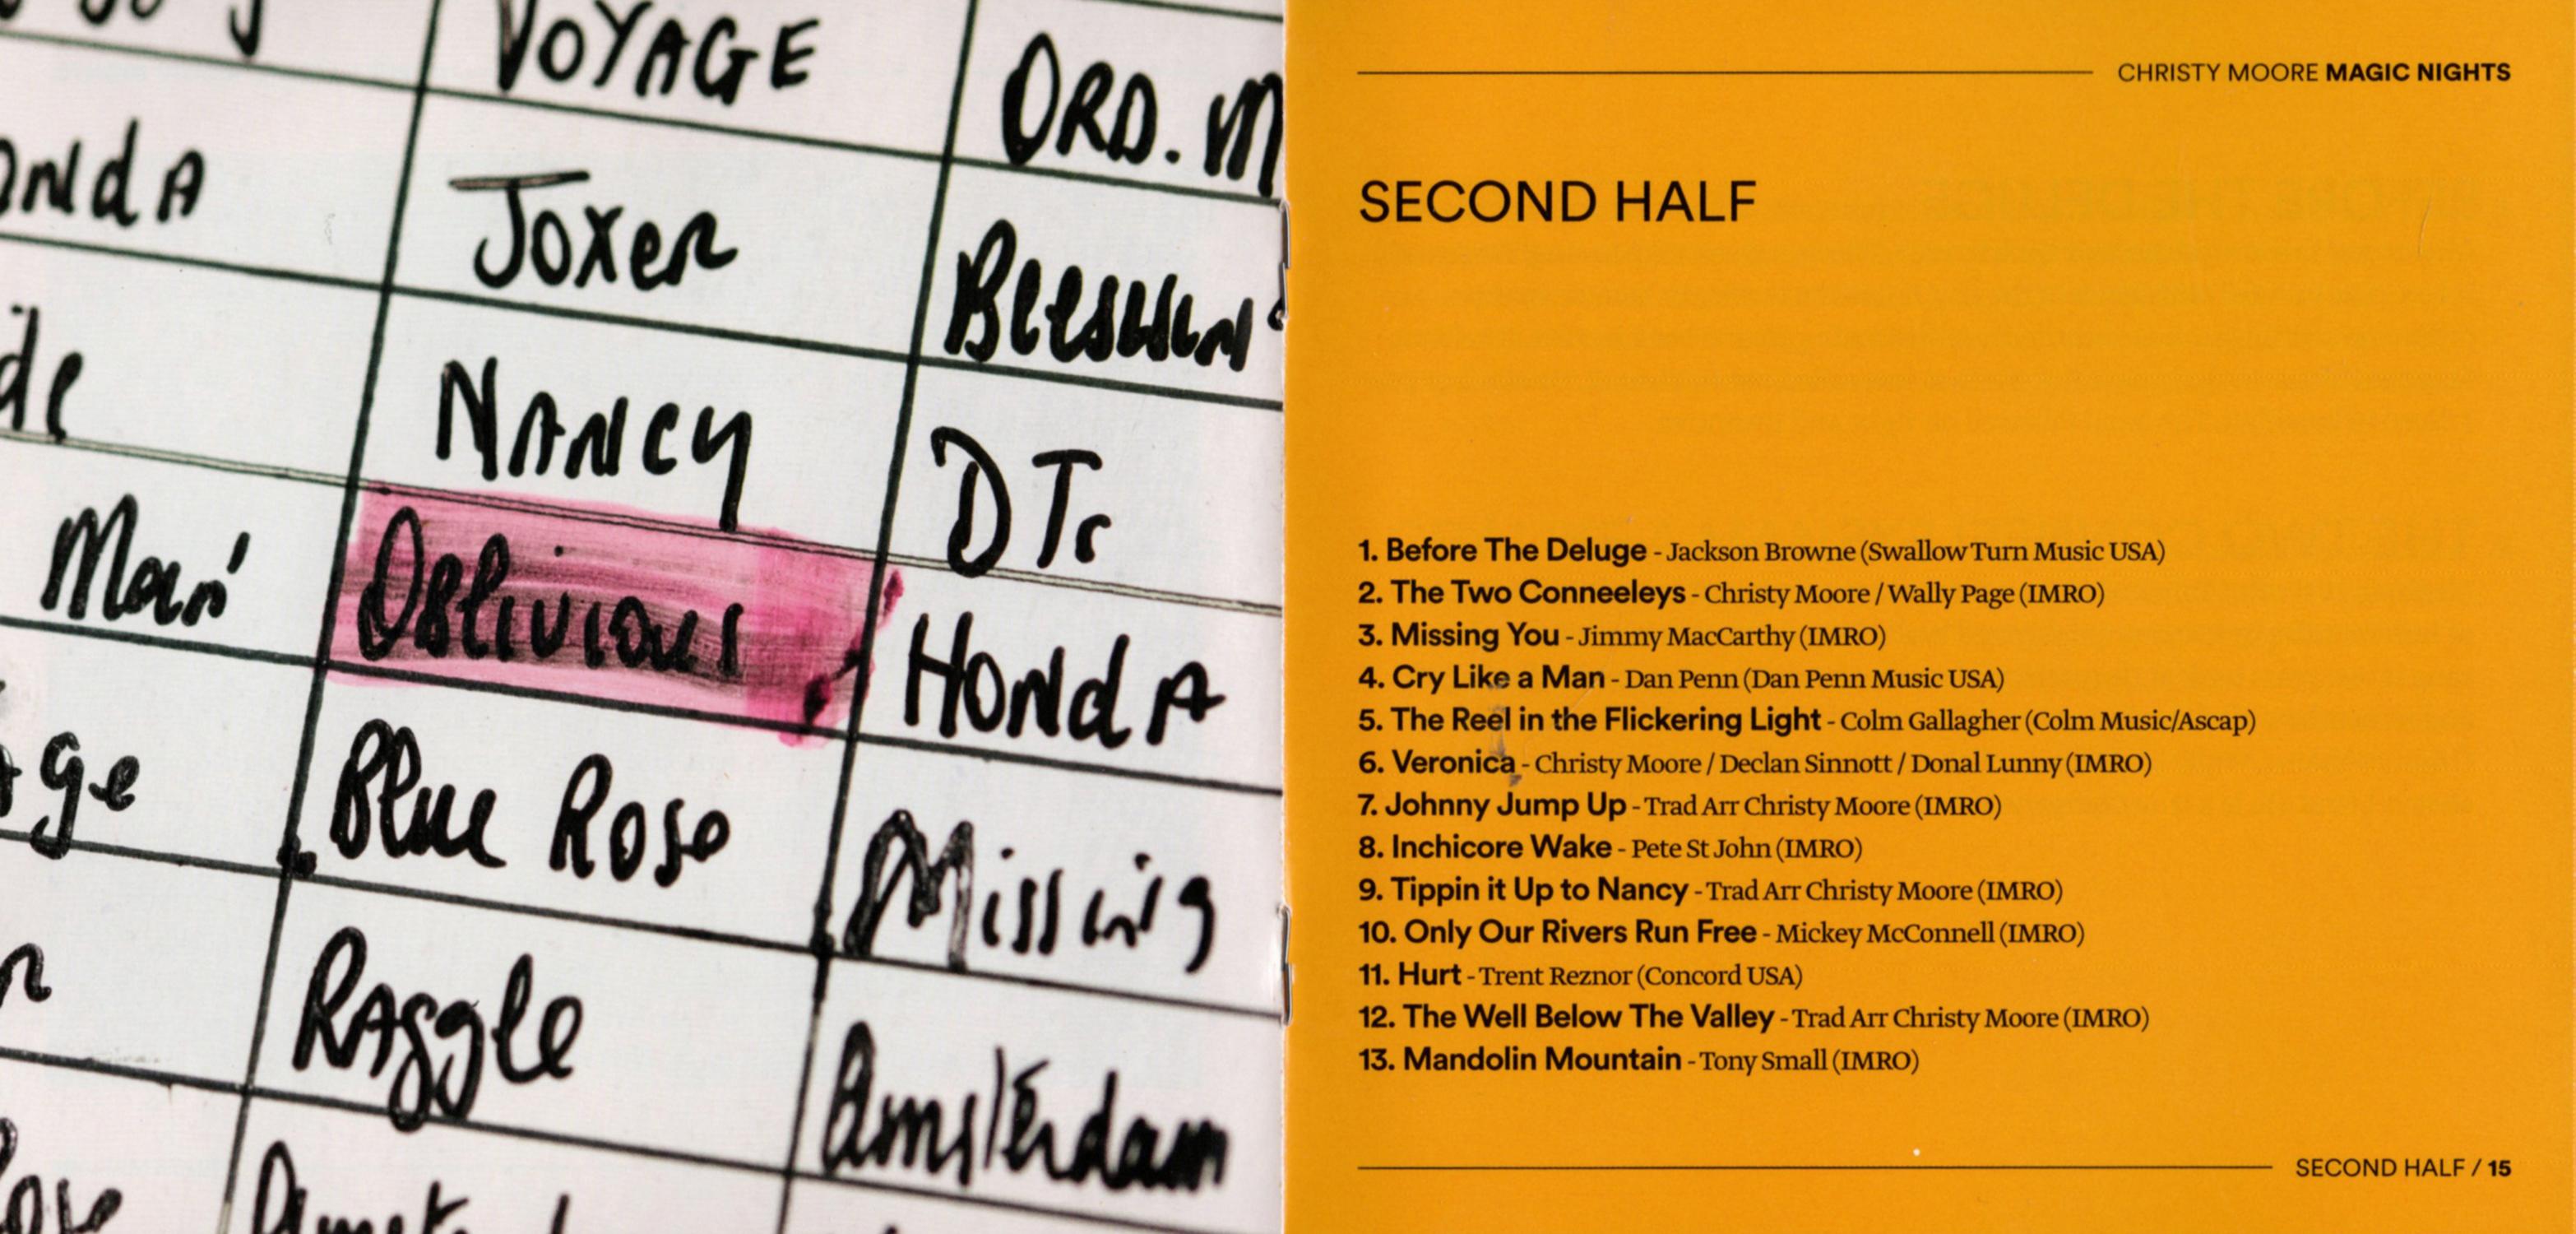 VOYAGE
ORD. M
JOXER
NANCY
DTs
Man'
OBLIVIOUS
HONDA
age
Blue Rose
Missing
RAggle
Amsterdam
CHRISTY MOORE MAGIC NIGHTS
SECOND HALF
1. Before The Deluge - Jackson Browne (Swallow Turn Music USA)
2. The Two Conneeleys - Christy Moore / Wally Page (IMRO)
3. Missing You - Jimmy MacCarthy (IMRO)
4. Cry Like a Man - Dan Penn (Dan Penn Music USA)
5. The Reel in the Flickering Light - Colm Gallagher (Colm Music/Ascap)
6. Veronica - Christy Moore / Declan Sinnott / Donal Lunny (IMRO)
7. Johnny Jump Up - Trad Arr Christy Moore (IMRO)
8. Inchicore Wake - Pete St John (IMRO)
9. Tippin it Up to Nancy - Trad Arr Christy Moore (IMRO)
10. Only Our Rivers Run Free - Mickey McConnell (IMRO)
11. Hurt - Trent Reznor (Concord USA)
12. The Well Below The Valley - Trad Arr Christy Moore (IMRO)
13. Mandolin Mountain - Tony Small (IMRO)
SECOND HALF / 15